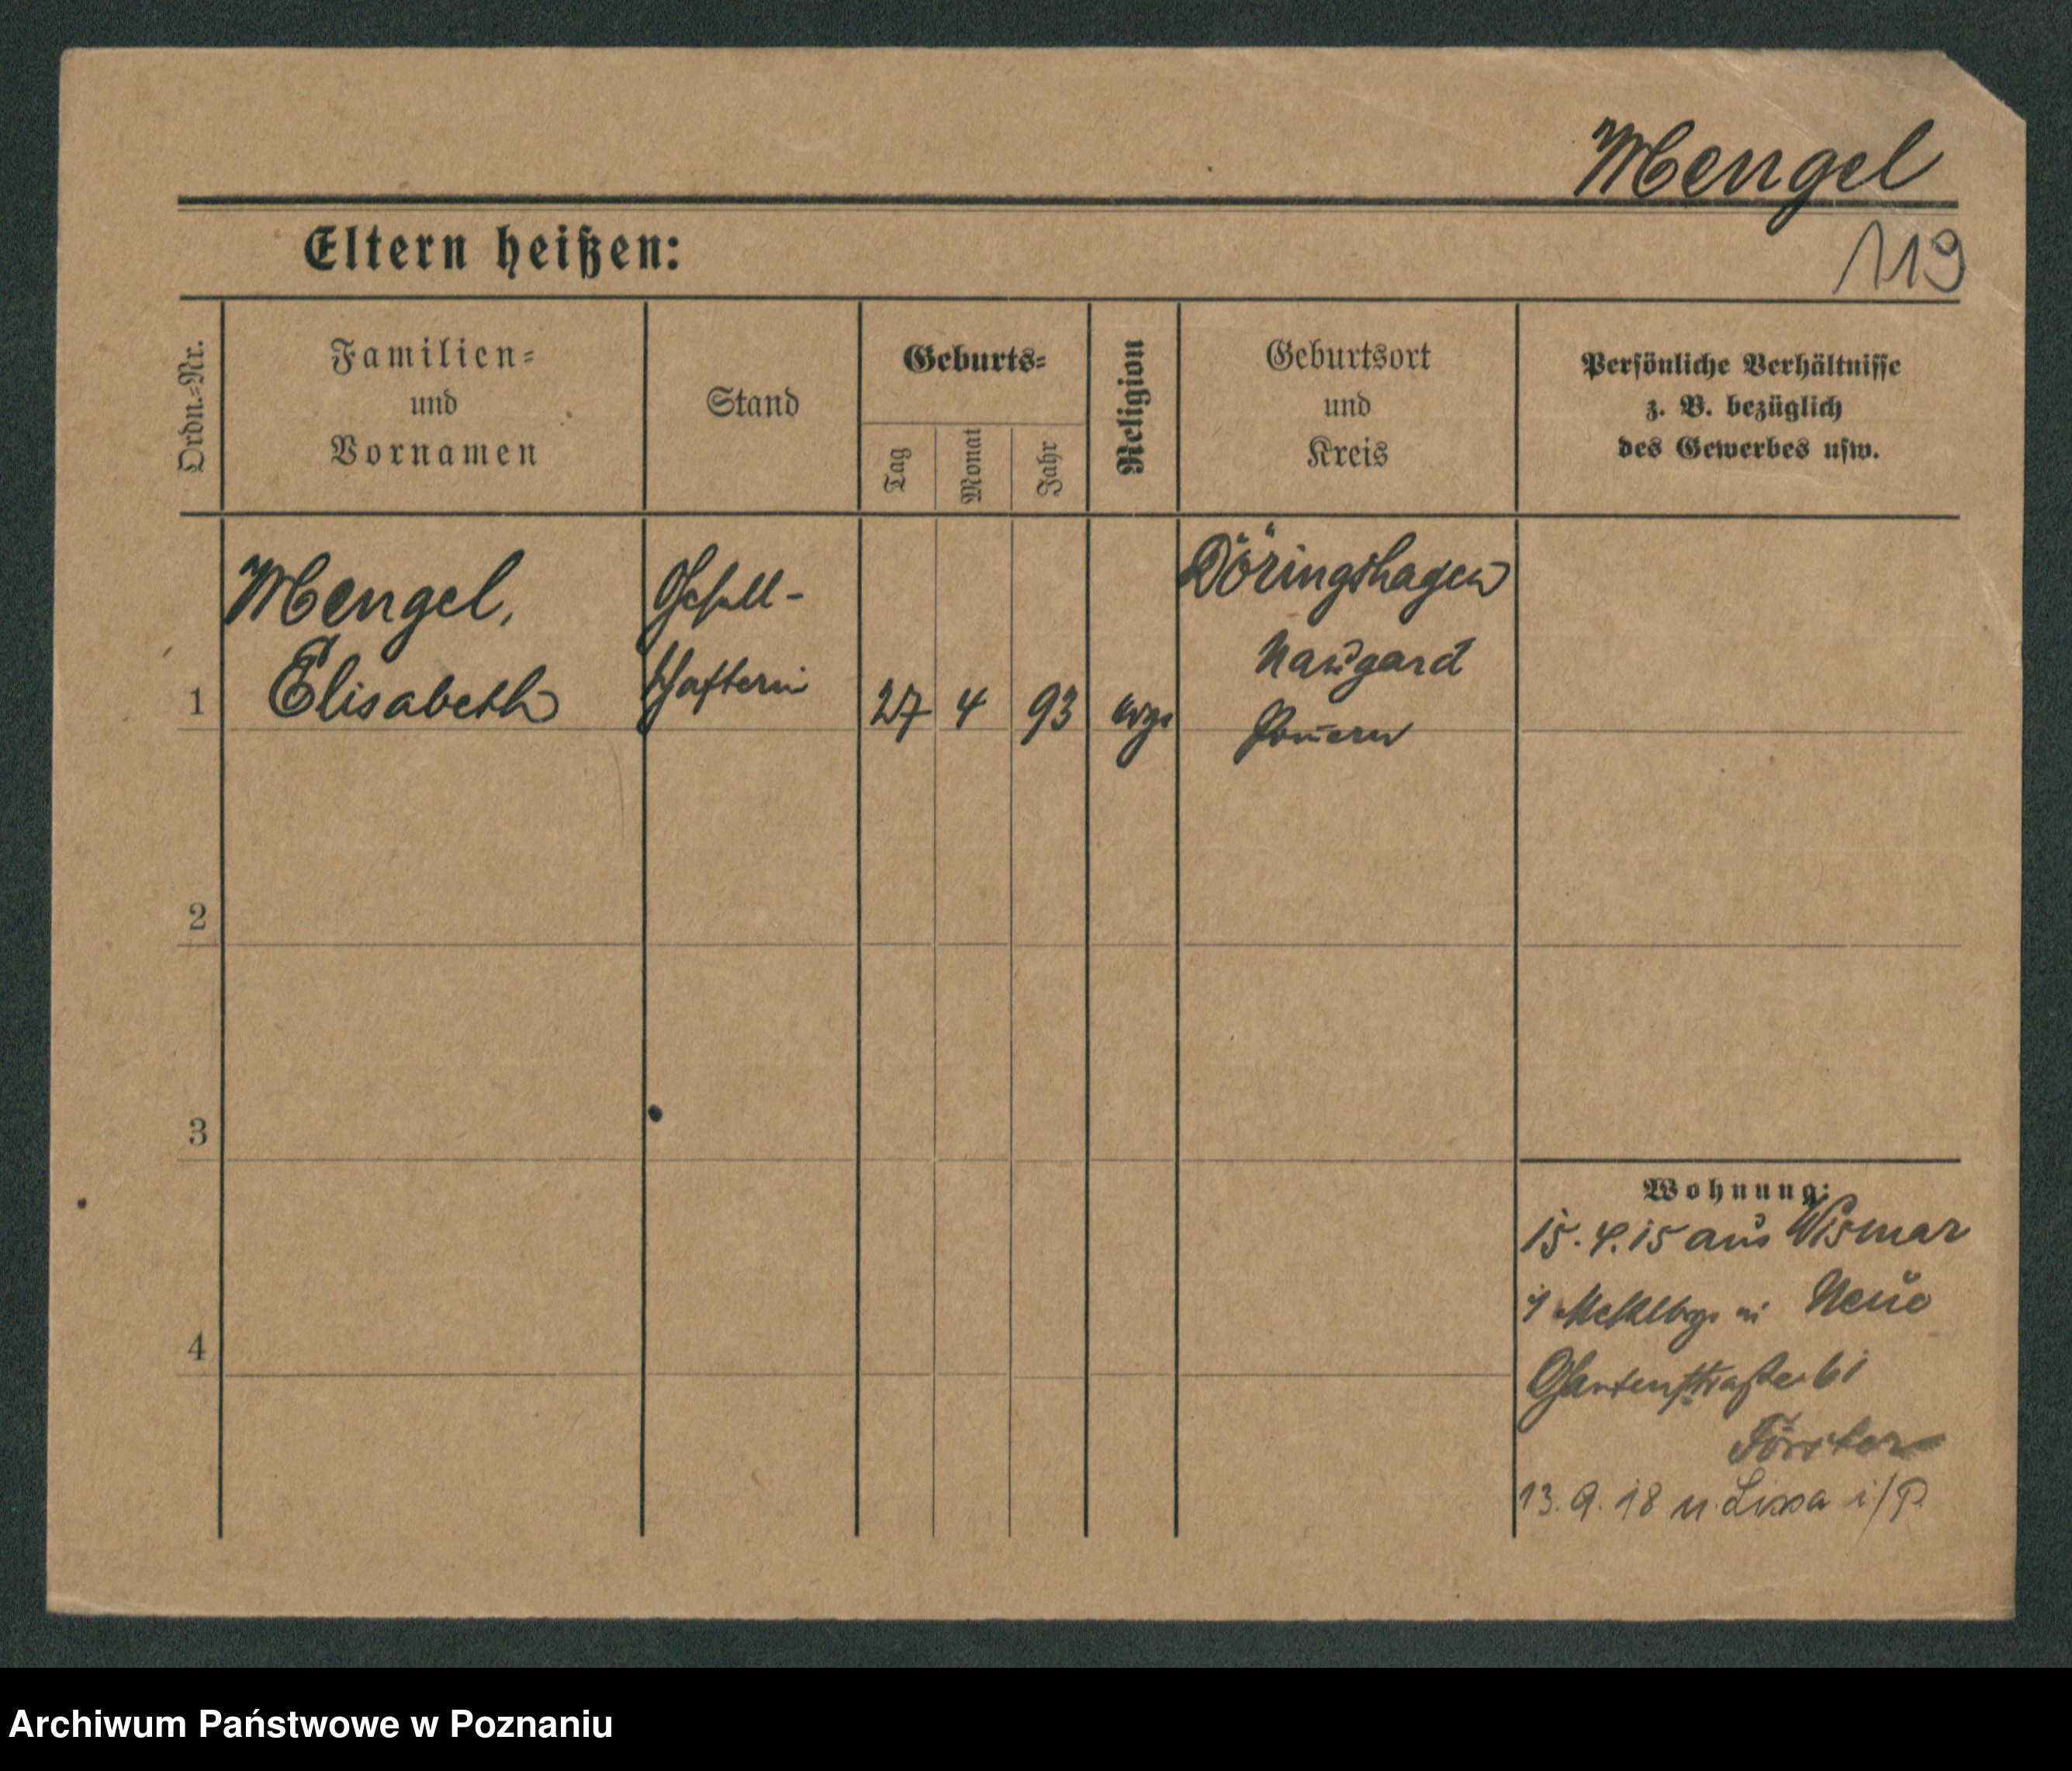 Mengel
119
Eltern heißen:
Ordn.=Nr.
Familien=
und
Vornamen
Stand
Geburts=
Tag
Monat
Jahr
Religion
Geburtsort
und
Kreis
Persönliche Verhältnisse
z. B. bezüglich
des Gewerbes usw.
1
Mengel,
Elisabeth
Gesell-
schafterin
27
4
93
evgl
Döringshagen
Naugard
Pom̄ern
2
3
4
Wohnung:
15.4.15 aus Wismar
Mcklbg in Neue
Gartenstraße 61
Förster
13.9.18 n. Lissa i/P.
Archiwum Państwowe w Poznaniu